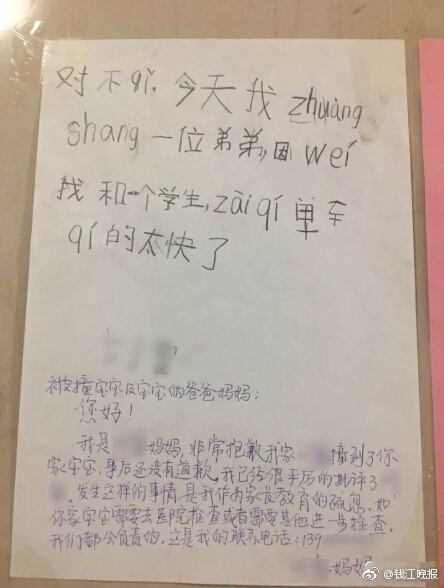 对不qǐ,今天我zhuàng
shang一位弟弟,因wéi
我和一个学生,zài qí单车
qí的太快了
被撞宝宝及宝宝的爸爸妈妈:
您好!
我是 妈妈,非常抱歉我家 撞到了你
家宝宝,事后还没有道歉,我已经很严厉的批评了
,发生这样的事情是我作为家长教育的疏忽,如
你家宝宝需要去医院检查或者需要其他进一步检查,
我们都会负责的,这是我的联系电话:139
妈妈
@钱江晚报